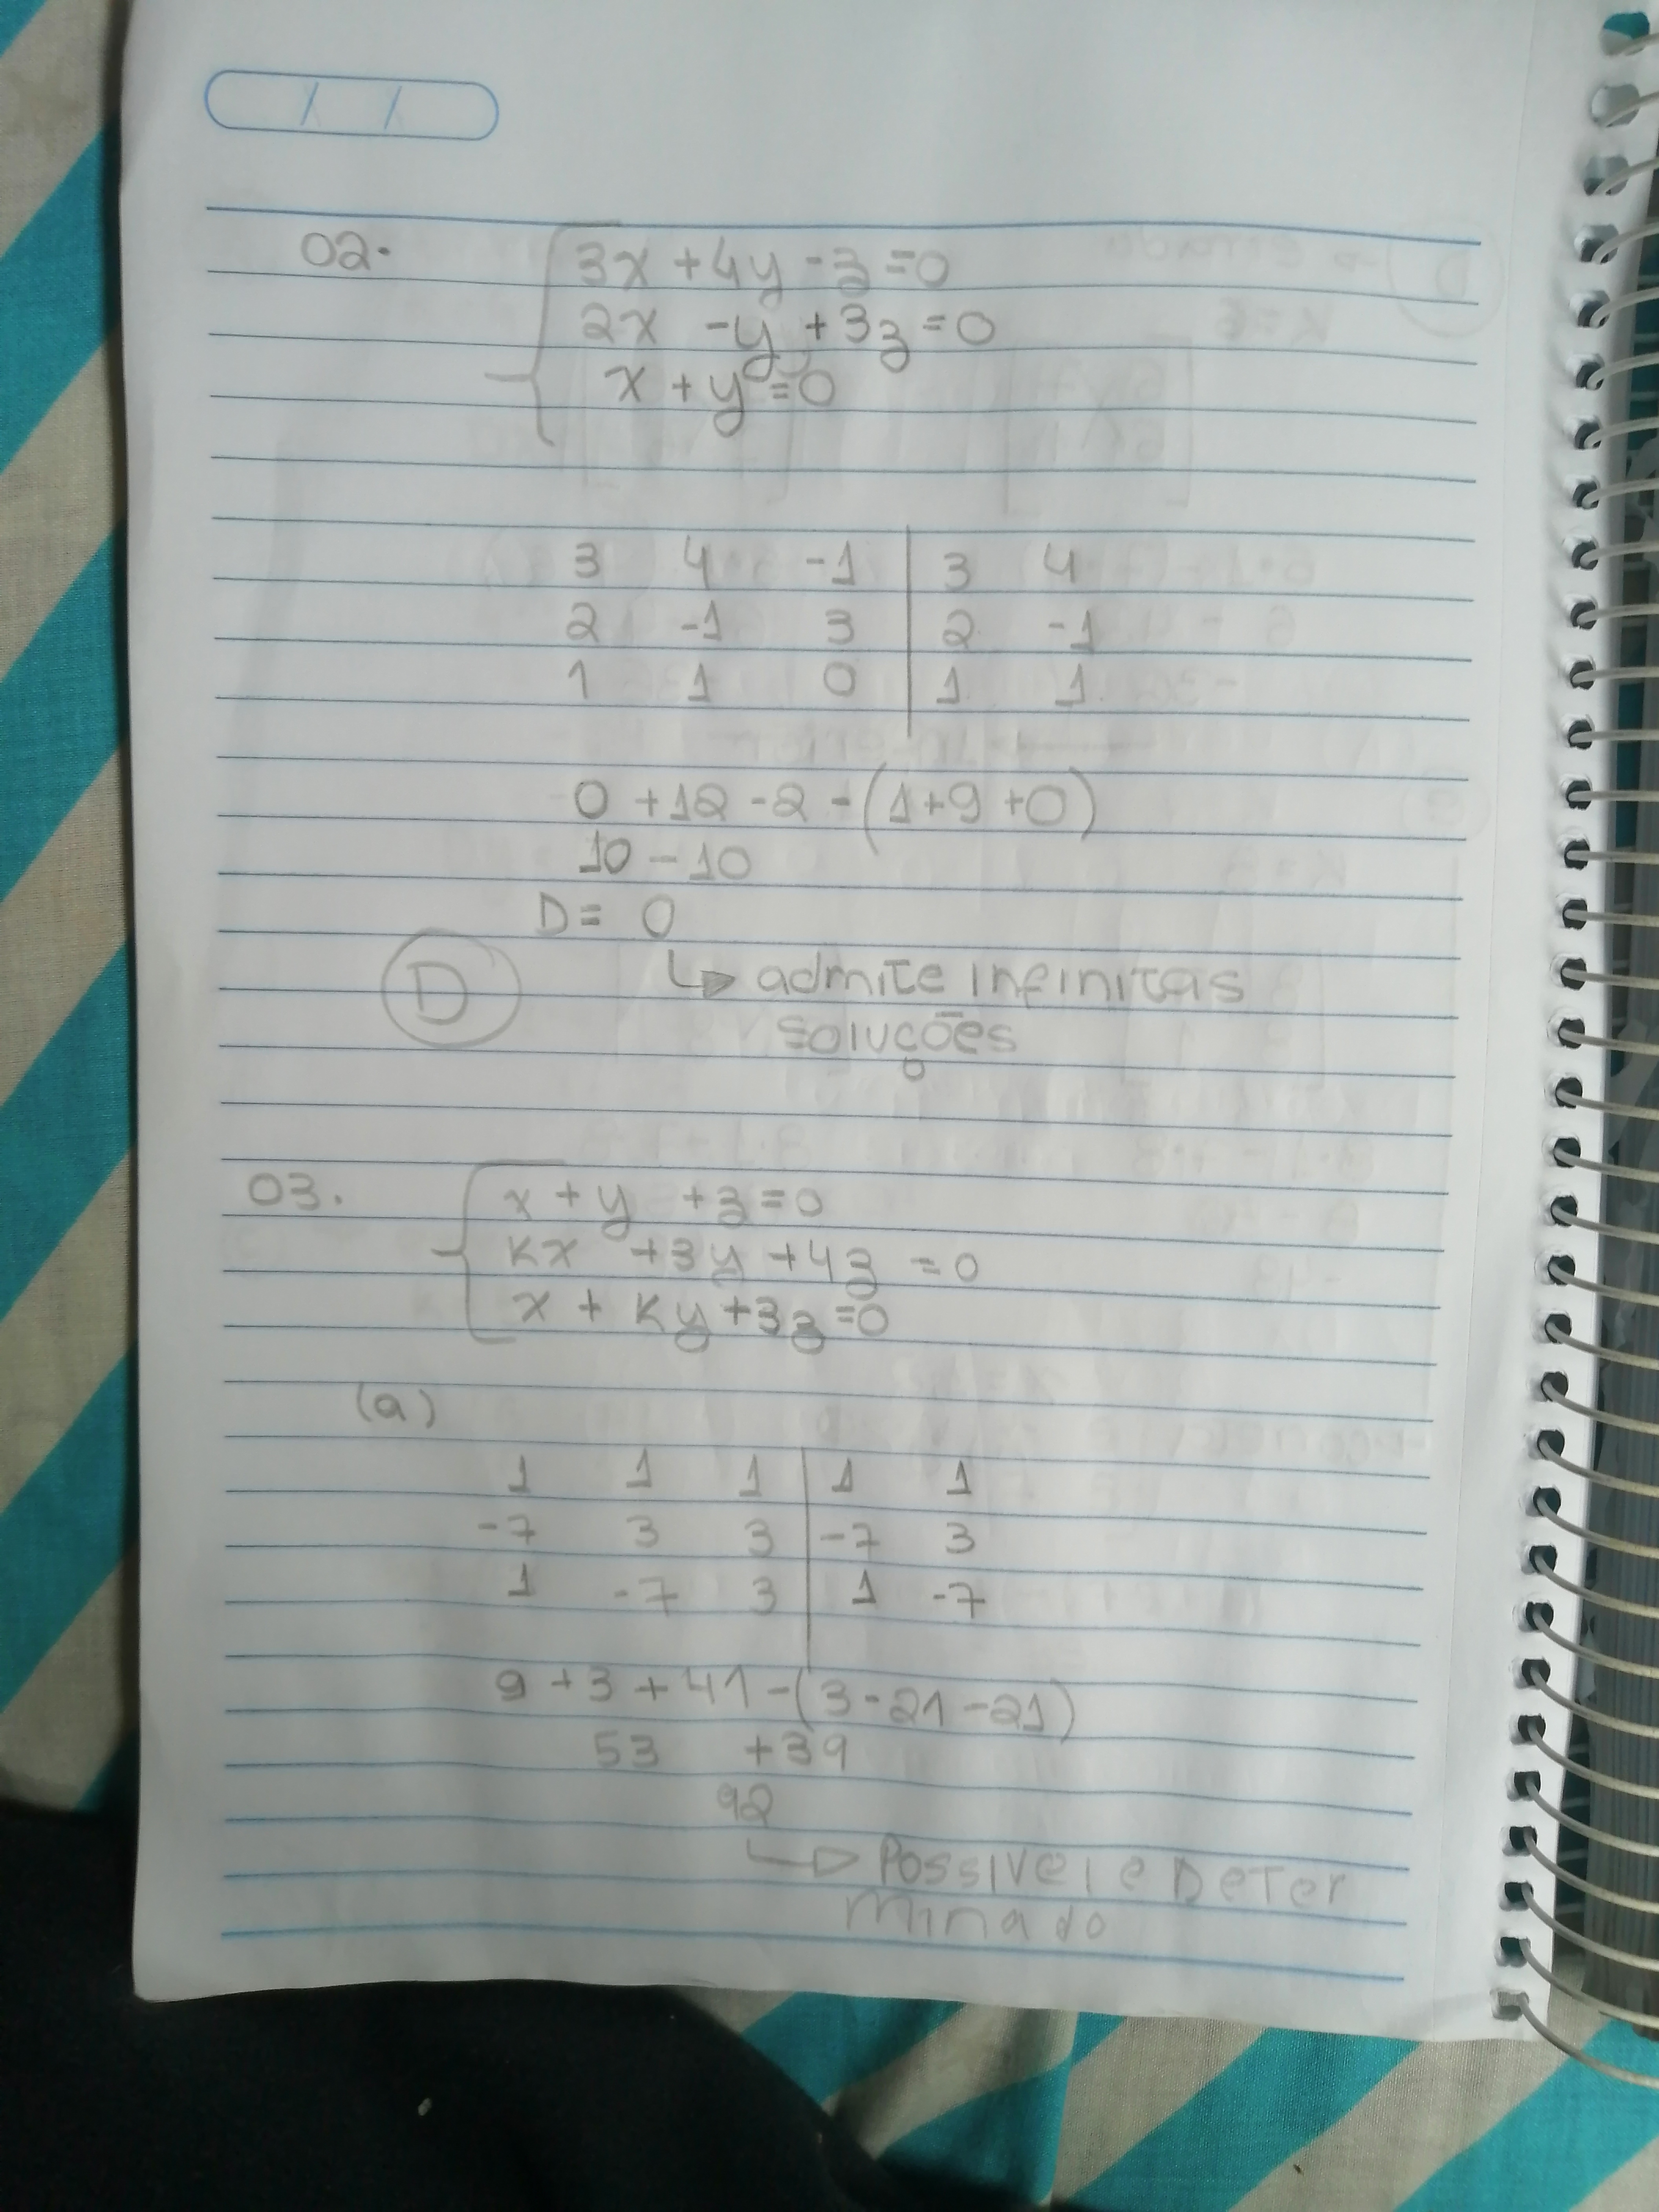 02.
3x + 4y - z = 0
2x - y + 3z = 0
x + y = 0
3 4 -1 | 3 4
2 -1 3 | 2 -1
1 1 0 | 1 1
0 + 12 - 2 - (1 + 9 + 0)
10 - 10
D = 0
D ↳ admite infinitas
soluções
03.
x + y + z = 0
Kx + 3y + 4z = 0
x + Ky + 3z = 0
(a)
1 1 1 | 1 1
-7 3 3 | -7 3
1 -7 3 | 1 -7
9 + 3 + 41 - (3 - 21 - 21)
53 + 39
92
↳ Possivel e Deter
minado